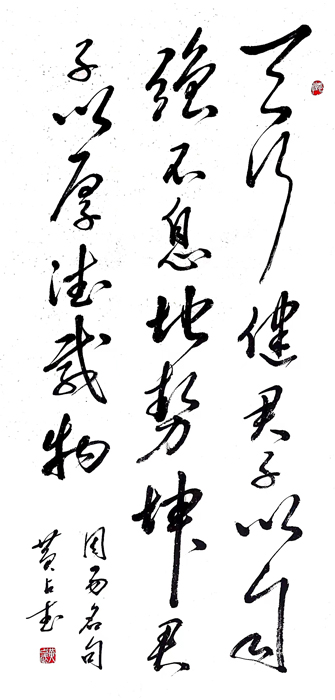 天行健君子以自
强不息地势坤君
子以厚德载物
周易名句
黄占武